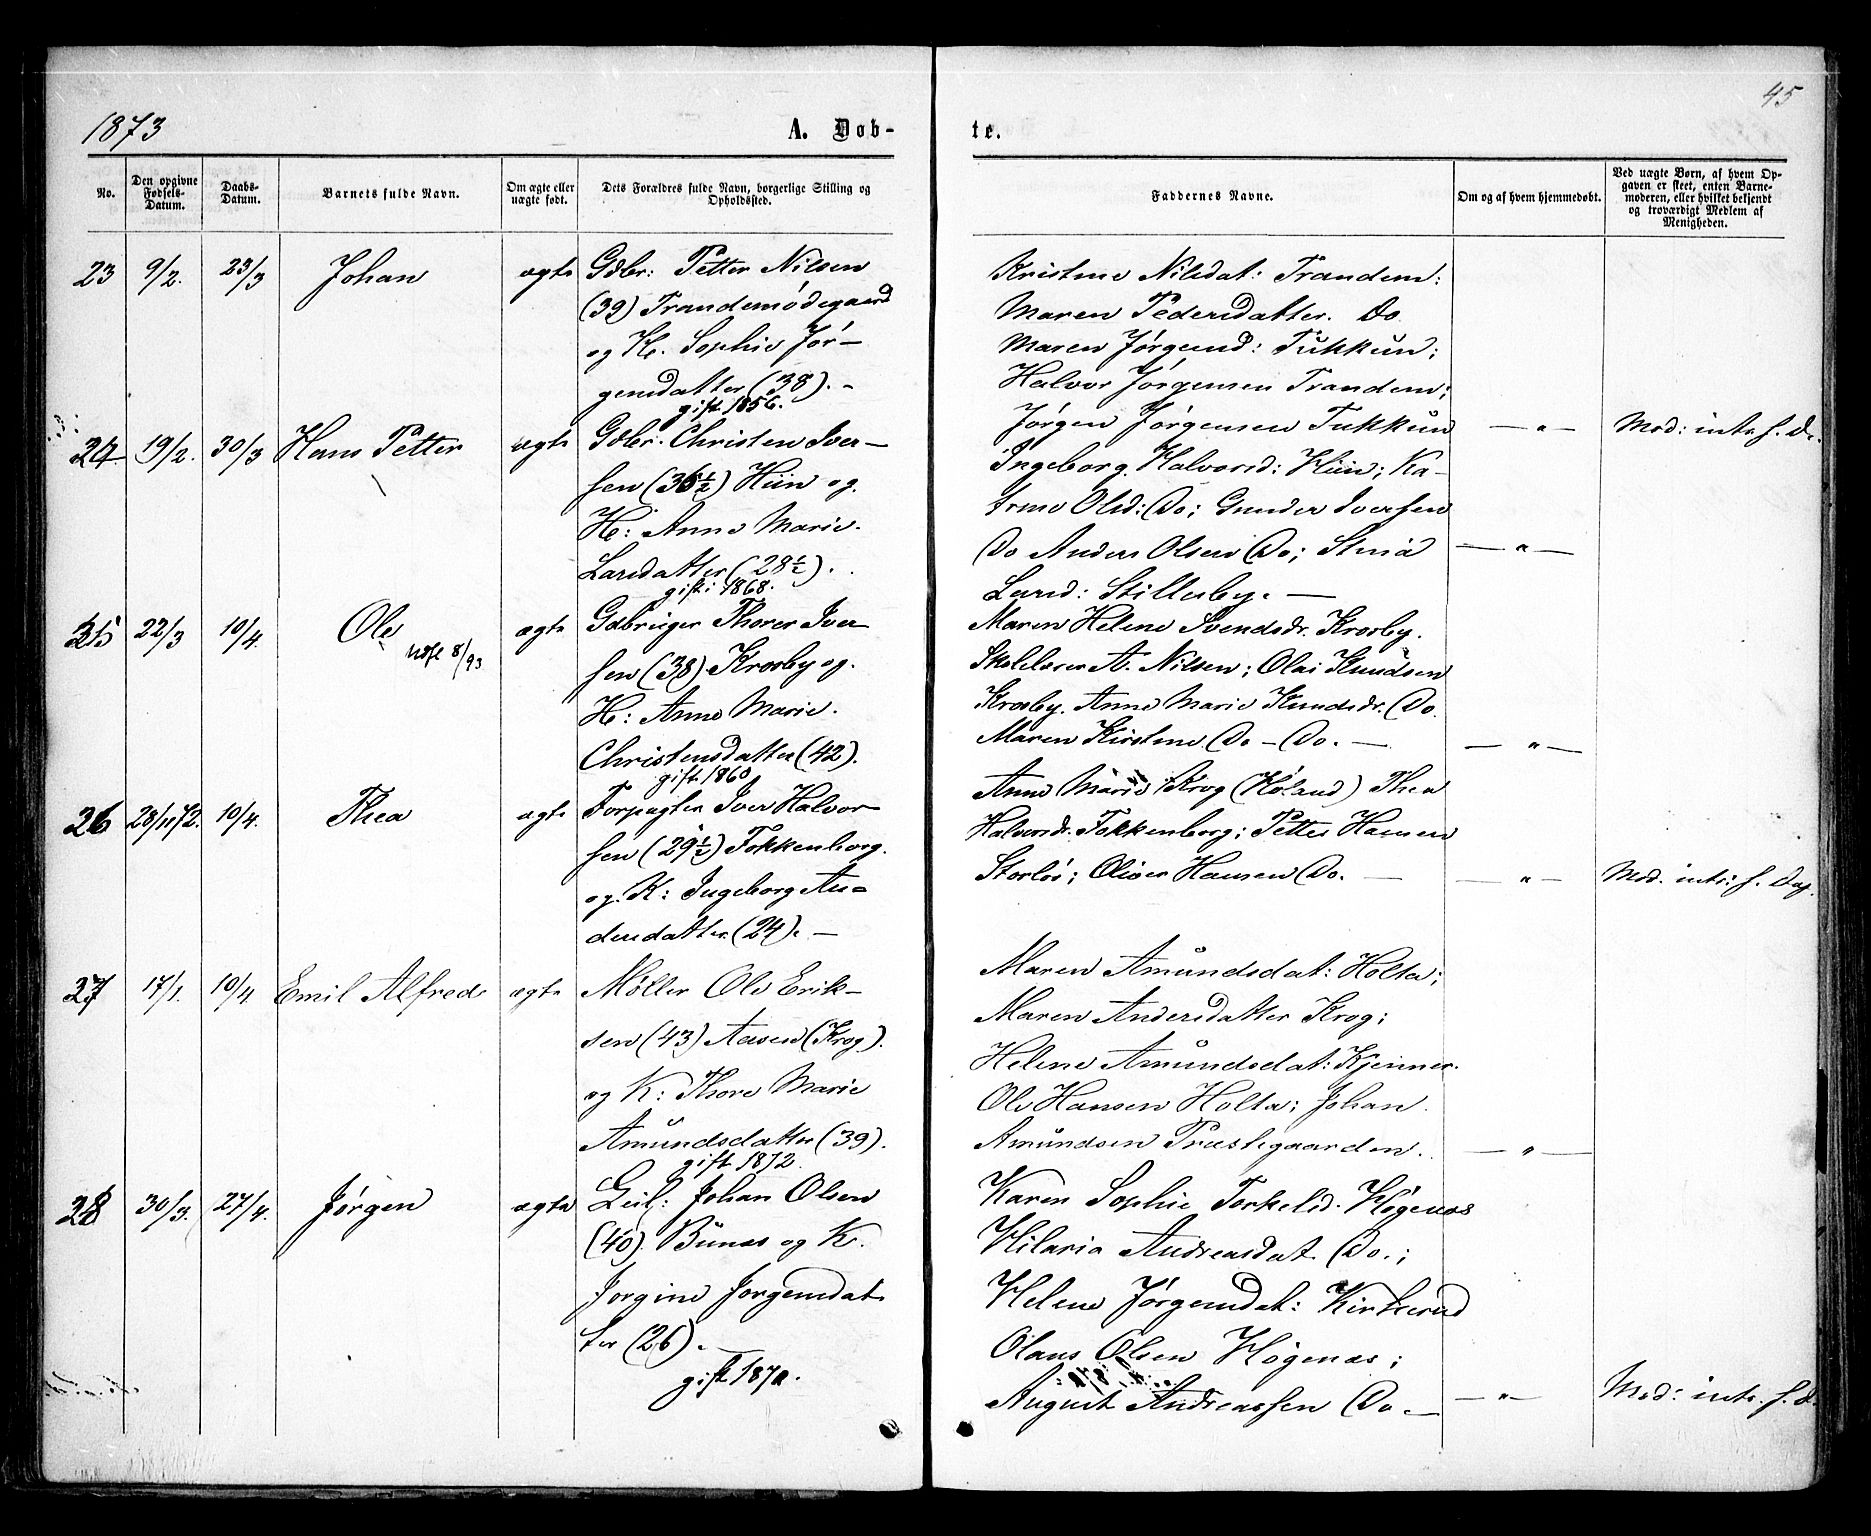 45
1873
A. Døb-
te.
No.
Den opgivne
Fødsels-
Datum.
Daabs-
Datum.
Barnets fulde Navn.
Om ægte eller
uægte født.
Dets Forældres fulde Navn, borgerlige Stilling og
Opholdssted.
Faddernes Navne.
Om og af hvem hjemmedøbt.
Ved uægte Børn, af hvem Op-
gaven er skeet, enten Barne-
moderen, eller hvilket bekjendt
og troværdigt Medlem af
Menigheden.
23 9/2. 23/3 Johan ægte Gdbr: Petter Nilsen
(39) Trandemødegaard
og H. Sophie Jør-
gensdatter (38). -
gift 1856.
Kristine Nilsdat: Trandem:
Maren Pedersdatter. Do
Maren Jørgensd: Tukkun;
Halvor Jørgensen Trandem;
Jørgen Jørgensen Tukkun — " — Mod: intr. f. D.
24 19/2. 30/3 Hans Petter ægte Gdbr. Christen Iver-
sen (36½) Hiin og
H: Anne Marie
Larsdatter (28½).
gift: 1868.
Ingeborg Halvorsd: Hiin; Ka-
trine Olsd: Do; Gunder Iversen
Do Anders Olsen Do; Stina — " —
Larsd: Stillesby. —
25 22/3 10/4. Ole ægte Gdbruger Thorer Iver-
8/93
sen (38) Krosby og
H: Anne Marie
Christensdatter (42).
gift 1860
Maren Helene Svendsdr. Krosby.
Skolelærer A. Nilsen; Olai Knudsen
Krosby. Anne Marie Knudsdr. Do.
Maren Kirstine Do - Do. — — " —
26 28/11 72. 10/4. Thea ægte Forpagter Iver Halvor-
sen (29½) Fokkenborg.
og K: Ingeborg An-
dersdatter (24). —
Anne Marie Krog (Høland) Thea
Halvorsdr. Fokkenborg; Petter Hansen
Storløs; Oliver Hansen Do. — — " — Mod. intr: f. Dag.
27 17/1. 10/4 Emil Alfred ægte Møller Ole Erik-
sen (43) Aasen (Krog).
og K: Thore Marie
Amundsdatter (39).
gift 1872.
Maren Amundsdat: Holta;
Maren Andersdatter Krog;
Helene Amundsdat: Kjenner.
Ole Hansen Holta; Johan
Amundsen Præstegaarden. — " —
28 30/3. 27/4. Jørgen ægte Leil: Johan Olsen
(40). Bunæs og K.
Jorgine Jorgensdat
ter (26). -
gift 1870.
Karen Sophie Torkelsd. Høgenæs
Hilaria Andreasdat Do.;
Helene Jørgensdat: Kirkerud
Olaus Olsen Høgenæs;
August Andreassen Do — — " — Mod: intr. f. D.